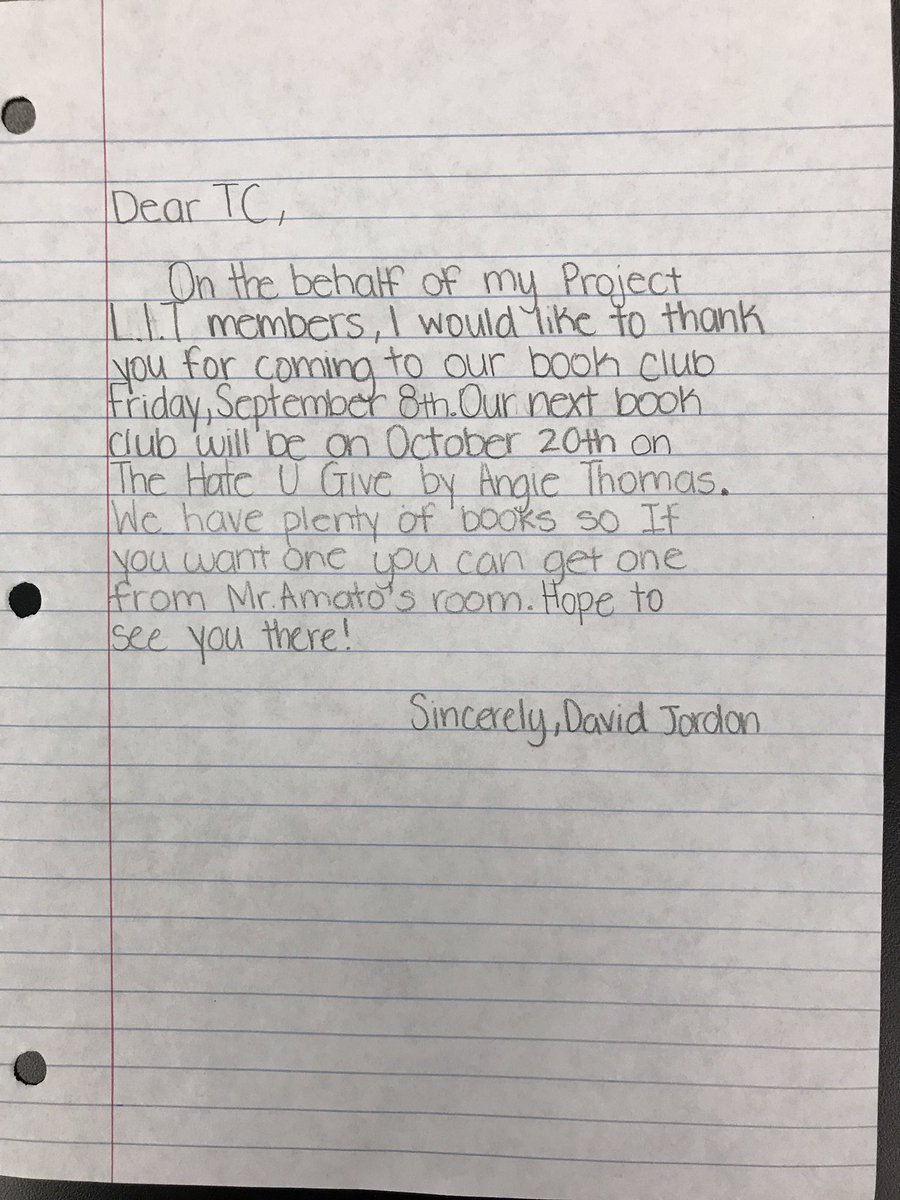 Dear TC,
On the behalf of my Project
L.I.T members, I would like to thank
you for coming to our book club
Friday, September 8th. Our next book
club will be on October 20th on
The Hate U Give by Angie Thomas.
We have plenty of books so If
you want one you can get one
from Mr. Amato's room. Hope to
see you there!
Sincerely, David Jordon